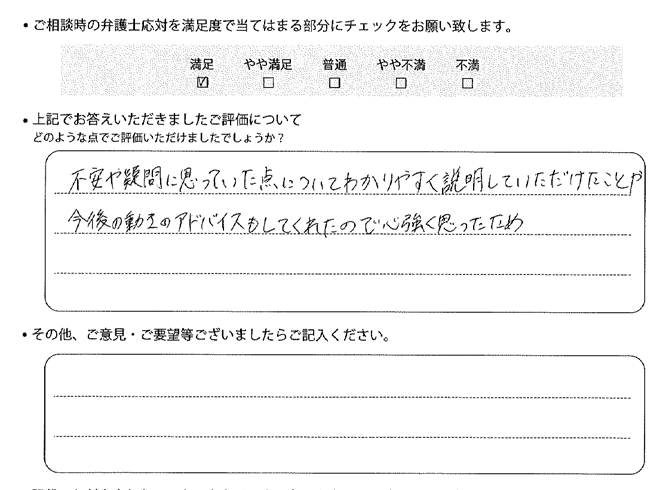 ・ご相談時の弁護士応対を満足度で当てはまる部分にチェックをお願い致します。
満足 やや満足 普通 やや不満 不満
☑ □ □ □ □
・上記でお答えいただきましたご評価について
どのような点でご評価いただけましたでしょうか？
不安や疑問に思っていた点についてわかりやすく説明していただけたことや
今後の動きのアドバイスもしてくれたので心強く思ったため
・その他、ご意見・ご要望等ございましたらご記入ください。